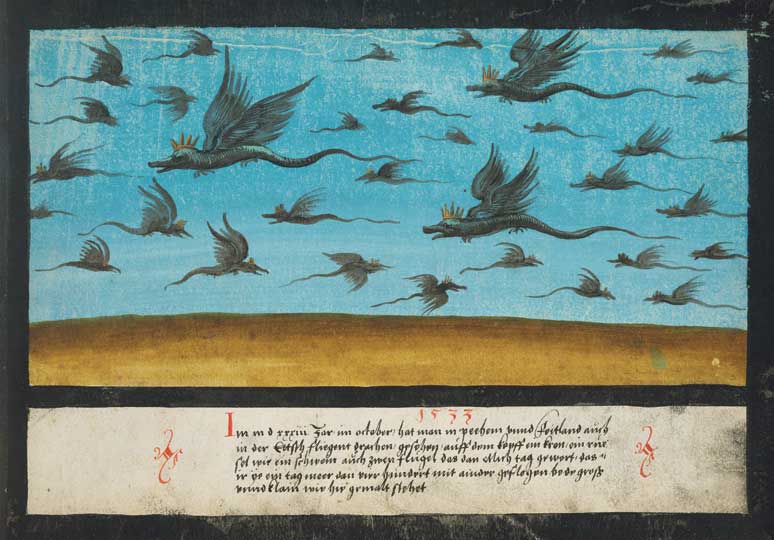 1533
Im m d xxxiii Jar im october hat man in pechem vnnd Foitland auch
in der Ettsch fliegent drachen gesehen auff dem kopff ein kron ein rüe
sel wie ein schwein auch zwen flügel das dan etlich tag gewert, das
ir ye ein tag meer dan vier hundert mit ainder geflogen bede gross
vnnd klain wie hie gemalt stehet